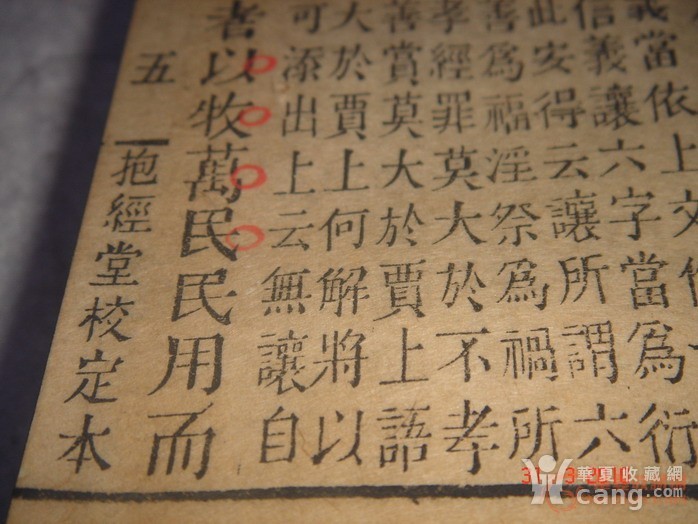 義當依上文作
信義讓六字當為衍
此安得云讓所謂六
善為福淫祭為禍所
孝經罪莫大於不孝
善賞莫大於賈上語
大於賈上何解將以
可添出上云無讓自
者以牧萬民民用而
五 抱經堂校定本
華夏收藏網
cang.com